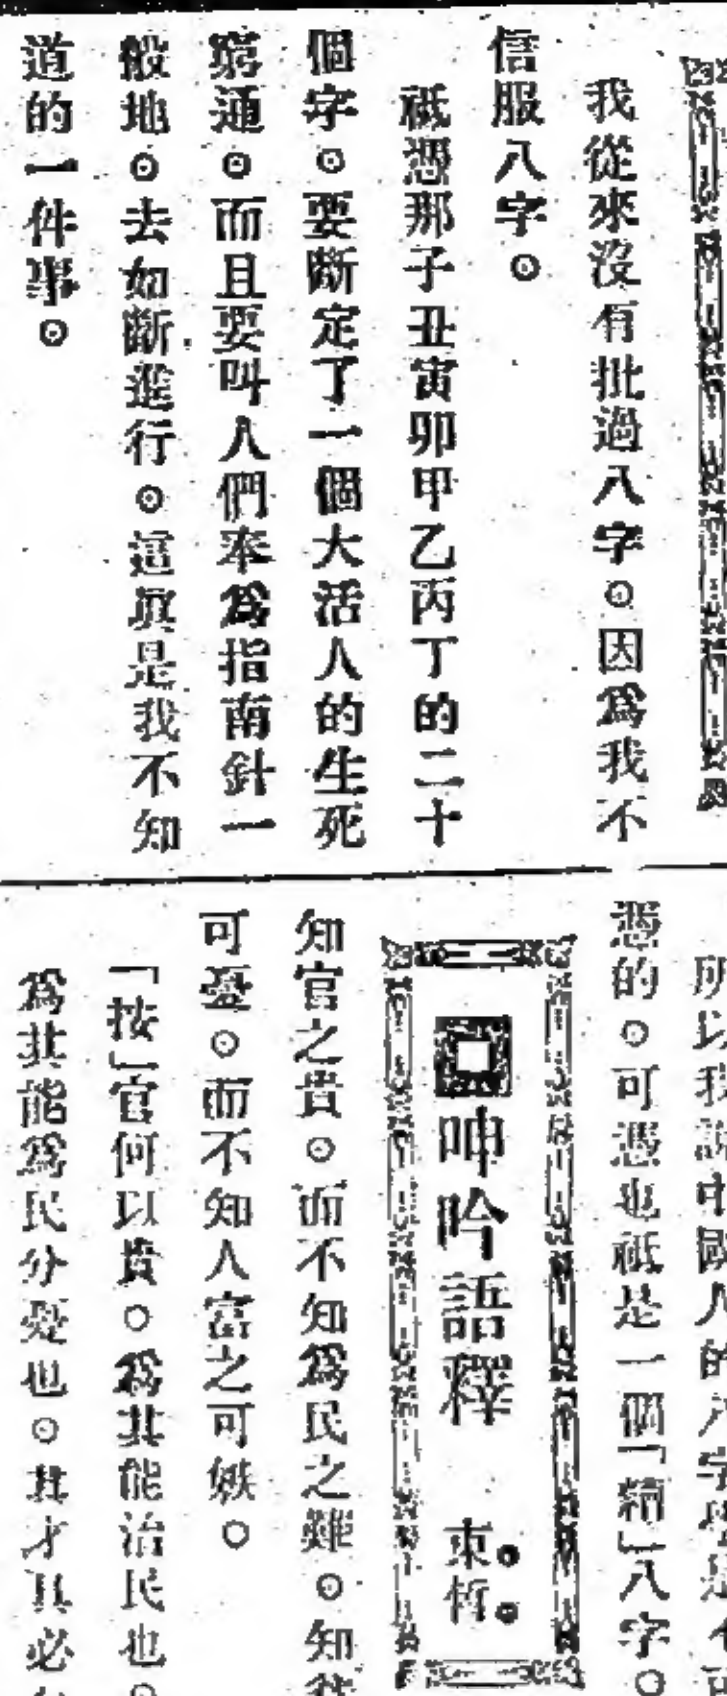 我從來沒有批過八字。因爲我不
信服八字。
祇憑那子丑寅卯甲乙丙丁的二十
個字。要斷定了一個大活人的生死
窮通。而且要叫人們奉爲指南針一
般地。去如斷進行。這眞是我不知
道的一件事。
所以我說中國人的八字學是不可
憑的。可憑也祇是一個「精」八字。
呻吟語釋 束晳
知官之貴。而不知爲民之難。知
可憂。而不知人富之可嫉。
「按」官何以貴。爲其能治民也。
爲其能爲民分憂也。其才具必